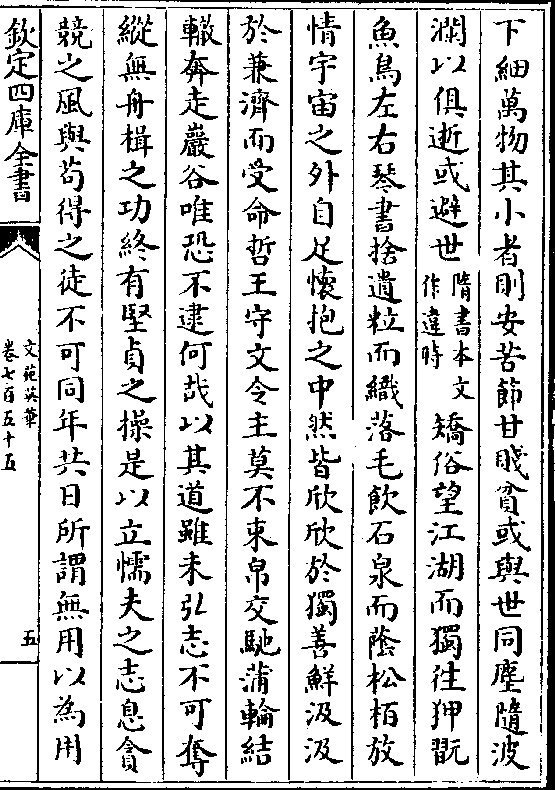 下細萬物其小者則安苦節甘賤貧或與世同塵隨波
瀾以俱逝或避世隋書本文作違時矯俗望江湖而獨徃狎翫
魚鳥左右琴書捨遺粒而織落毛飲石泉而䕃松柏放
情宇宙之外自足懷抱之中然皆欣欣於獨善鮮汲汲
於兼濟而受命哲王守文令主莫不束帛交馳蒲輪結
轍奔走巖谷唯恐不逮何哉以其道雖未弘志不可奪
縱無舟楫之功終有堅貞之操是以立懦夫之志息貪
競之風與苟得之徒不可同年共日所謂無用以為用
欽定四庫全書
文苑英華
卷七百五十五
五